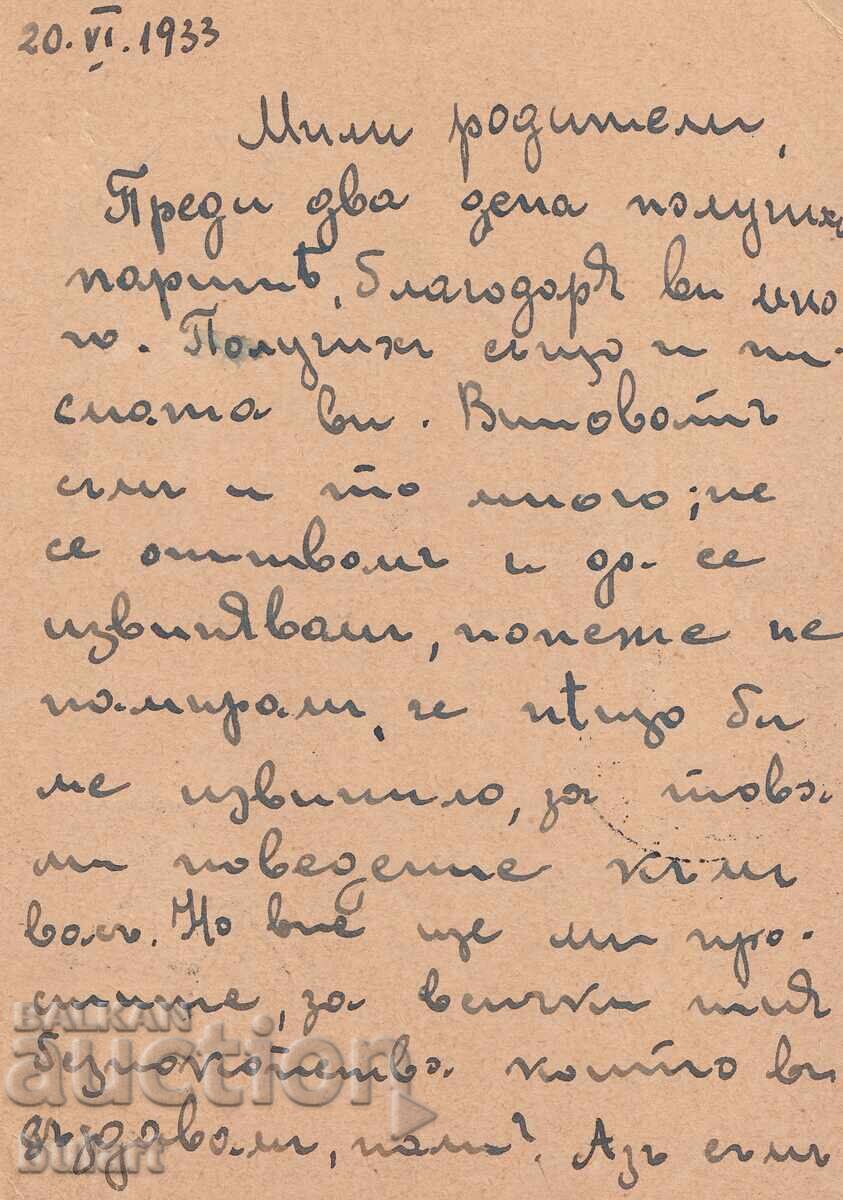 20.VI.1933
Мили родители,
Преди два дена получихъ
паритѣ, благодаря ви мно
го. Получихъ също и пи-
смата ви. Виноватъ
съмъ и то много; не
се опитвамъ и да се
извинявамъ, понеже не
намирамъ, че нѣщо би
ме извинило, за това
ми поведение къмъ
васъ. Но вие ще ми про-
стите, за всички тия
безпокойства които ви
създавамъ, нали? Азъ съмъ
BALKAN
auction
bulart